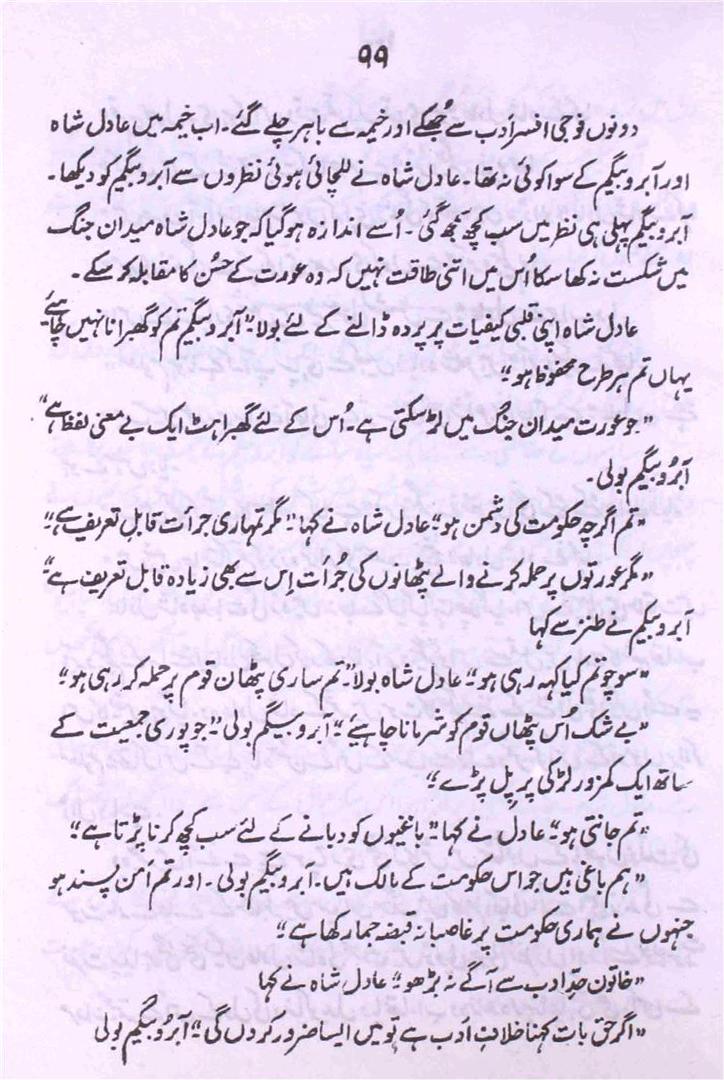 ۹۹
دونوں فوجی افسر اَدب سے جُھکے اور خیمہ سے باہر چلے گئے۔ اب خیمہ میں عادل شاہ
اور آبرو بیگم کے سوا کوئی نہ تھا۔ عادل شاہ نے للچائی ہوئی نظروں سے آبرو بیگم کو دیکھا۔
آبرو بیگم پہلی ہی نظر میں سب کچھ سمجھ گئی۔ اُسے اندازہ ہو گیا کہ جو عادل شاہ میدان جنگ
میں شکست نہ کھا سکا اُس میں اتنی طاقت نہیں کہ وہ عورت کے حسُن کا مقابلہ کر سکے۔
عادل شاہ اپنی قلبی کیفیات پر پردہ ڈالنے کے لئے بولا۔ "آبرو بیگم تم کو گھبرانا نہیں چاہئے
یہاں تم ہر طرح محفوظ ہو"
"جو عورت میدان جنگ میں لڑ سکتی ہے۔ اُس کے لئے گھبراہٹ ایک بے معنی لفظ ہے"
آبرُو بیگم بولی۔
"تم اگرچہ حکومت کی دشمن ہو" عادل شاہ نے کہا "مگر تمہاری جرأت قابلِ تعریف ہے"
"مگر عورتوں پر حملہ کرنے والے پٹھانوں کی جُرأت اِس سے بھی زیادہ قابل تعریف ہے"
آبرو بیگم نے طنز سے کہا
"سوچو تم کیا کہہ رہی ہو" عادل شاہ بولا "تم ساری پٹھان قوم پر حملہ کر رہی ہو"
"بے شک اُس پٹھان قوم کو شرمانا چاہیئے" آبرو بیگم بولی "جو پوری جمعیت کے
ساتھ ایک کمزور لڑکی پر پِل پڑے"
"تم جانتی ہو" عادل نے کہا "باغیوں کو دبانے کے لئے سب کچھ کرنا پڑتا ہے"
"ہم باغی ہیں جو اس حکومت کے مالک ہیں۔ ابرو بیگم بولی۔ اور تم امن پسند ہو
جنہوں نے ہماری حکومت پر غاصبانہ قبضہ جما رکھا ہے"
"خاتون حدِّ ادب سے آگے نہ بڑھو" عادل شاہ نے کہا
"اگر حق بات کہنا خلافِ اَدب ہے تو میں ایسا ضرور کروں گی" آبرو بیگم بولی